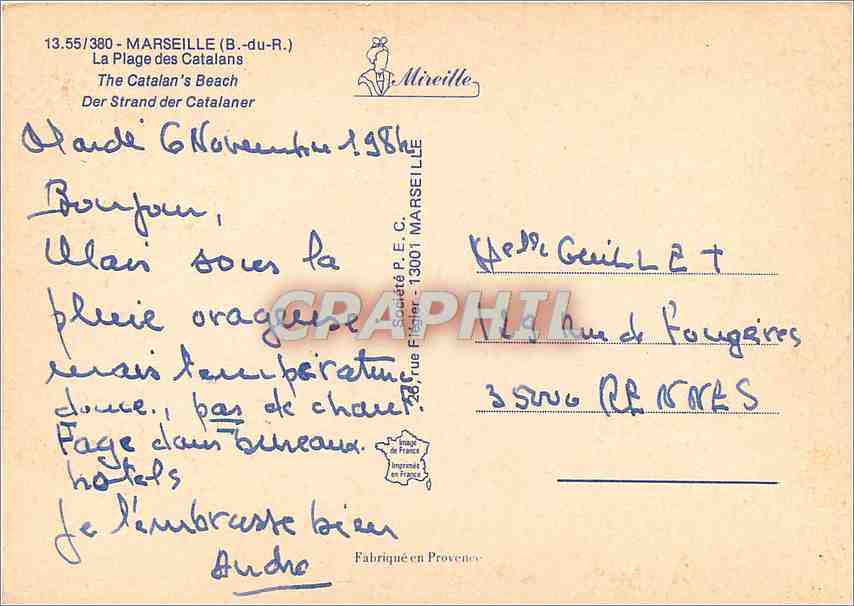 13.55/380 - MARSEILLE (B.-du-R.)
La Plage des Catalans
The Catalan's Beach
Der Strand der Catalaner
Mireille
Mardi 6 Novembre 1984
Bonjour,
Mais sous la
pluie orageuse
mais température
douce, pas de chauf-
fage dans bureaux.
hotels
Je t'embrasse bien
André
Société P.E.C.
26, rue Flégier - 13001 MARSEILLE
CARTAPHIL
Image
de France
Imprimée
en France
Fabriqué en Provence
Melle GUILLET
129 Rue de Fougères
35000 RENNES